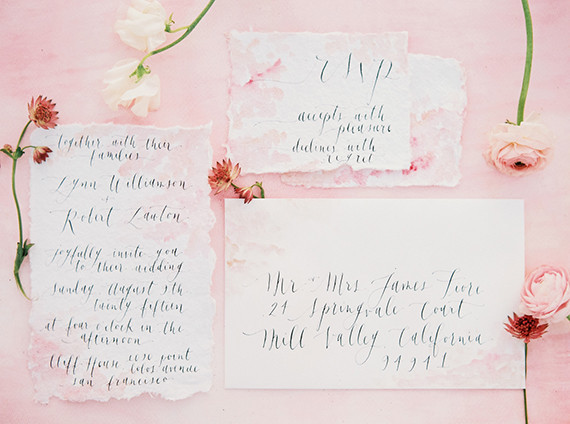 together with their
families
Lynn Williamson
+
Robert Lawton
joyfully invite you
to their wedding
Sunday August 9th
twenty fifteen
at four o'clock in the
afternoon
Cliff House
point
san francisco
RSVP
accepts with
pleasure
declines with
regret
Mr + Mrs James Fiore
21 Springvale Court
Mill Valley, California
94941